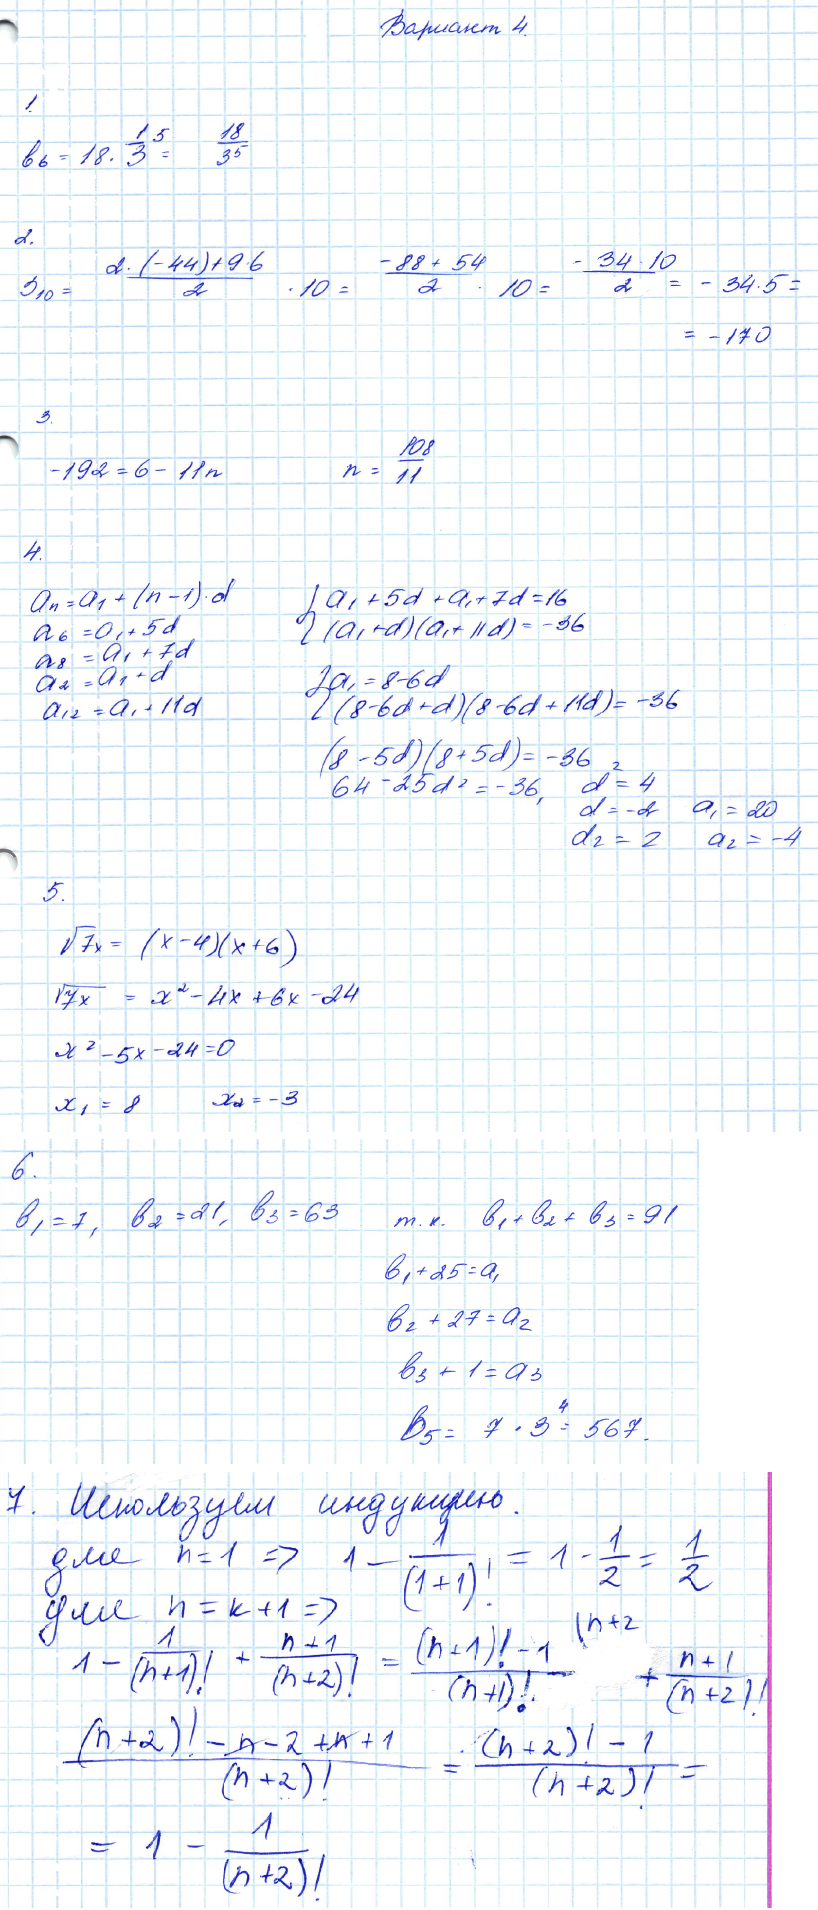 Вариант 4.
1.
b₆ = 18 · 1/3⁵ = 18/3⁵
2.
S₁₀ = (2·(-44)+9·6)/2 · 10 = (-88+54)/2 · 10 = -34·10/2 = -34·5 =
= -170
3.
-192 = 6 - 11n n = 108/11
4.
aₙ = a₁ + (n-1)·d { a₁ + 5d + a₁ + 7d = 16
a₆ = a₁ + 5d { (a₁+d)(a₁+11d) = -36
a₈ = a₁ + 7d
a₂ = a₁ + d { a₁ = 8-6d
a₁₂ = a₁ + 11d { (8-6d+d)(8-6d+11d) = -36
(8-5d)(8+5d) = -36
64 - 25d² = -36, d² = 4
d = -2 a₁ = 20
d₂ = 2 a₂ = -4
5.
√7x = (x-4)(x+6)
√7x = x² - 4x + 6x - 24
x² - 5x - 24 = 0
x₁ = 8 x₂ = -3
6.
b₁ = 7, b₂ = 21, b₃ = 63 т.к. b₁ + b₂ + b₃ = 91
b₁ + 25 = a₁
b₂ + 27 = a₂
b₃ + 1 = a₃
b₅ = 7 · 3⁴ = 567.
7. Используем индукцию.
для n=1 => 1 - 1/(1+1)! = 1 - 1/2 = 1/2
для n = k+1 =>
1 - 1/(n+1)! + (n+1)/(n+2)! = ((n+1)! - 1)/(n+1)! (n+2 + (n+1)/(n+2)!
((n+2)! - n - 2 + n + 1)/(n+2)! = ((n+2)! - 1)/(n+2)! =
= 1 - 1/(n+2)!